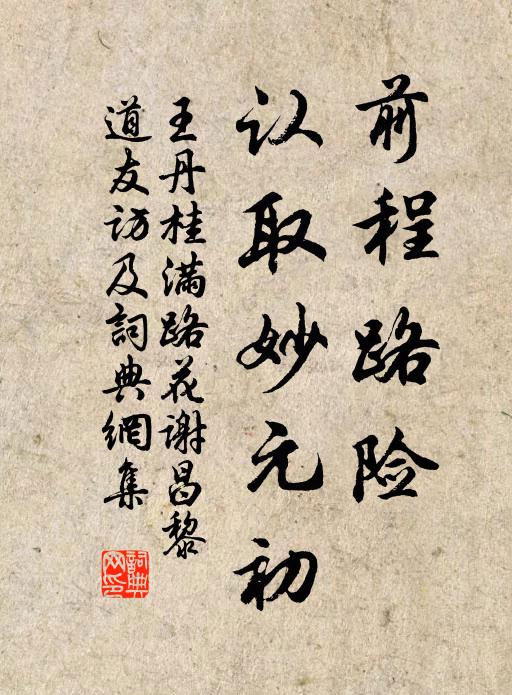 前程路险
认取妙元初
王丹桂满路花谢昌黎
道友访及詞典網集
詞典
网印